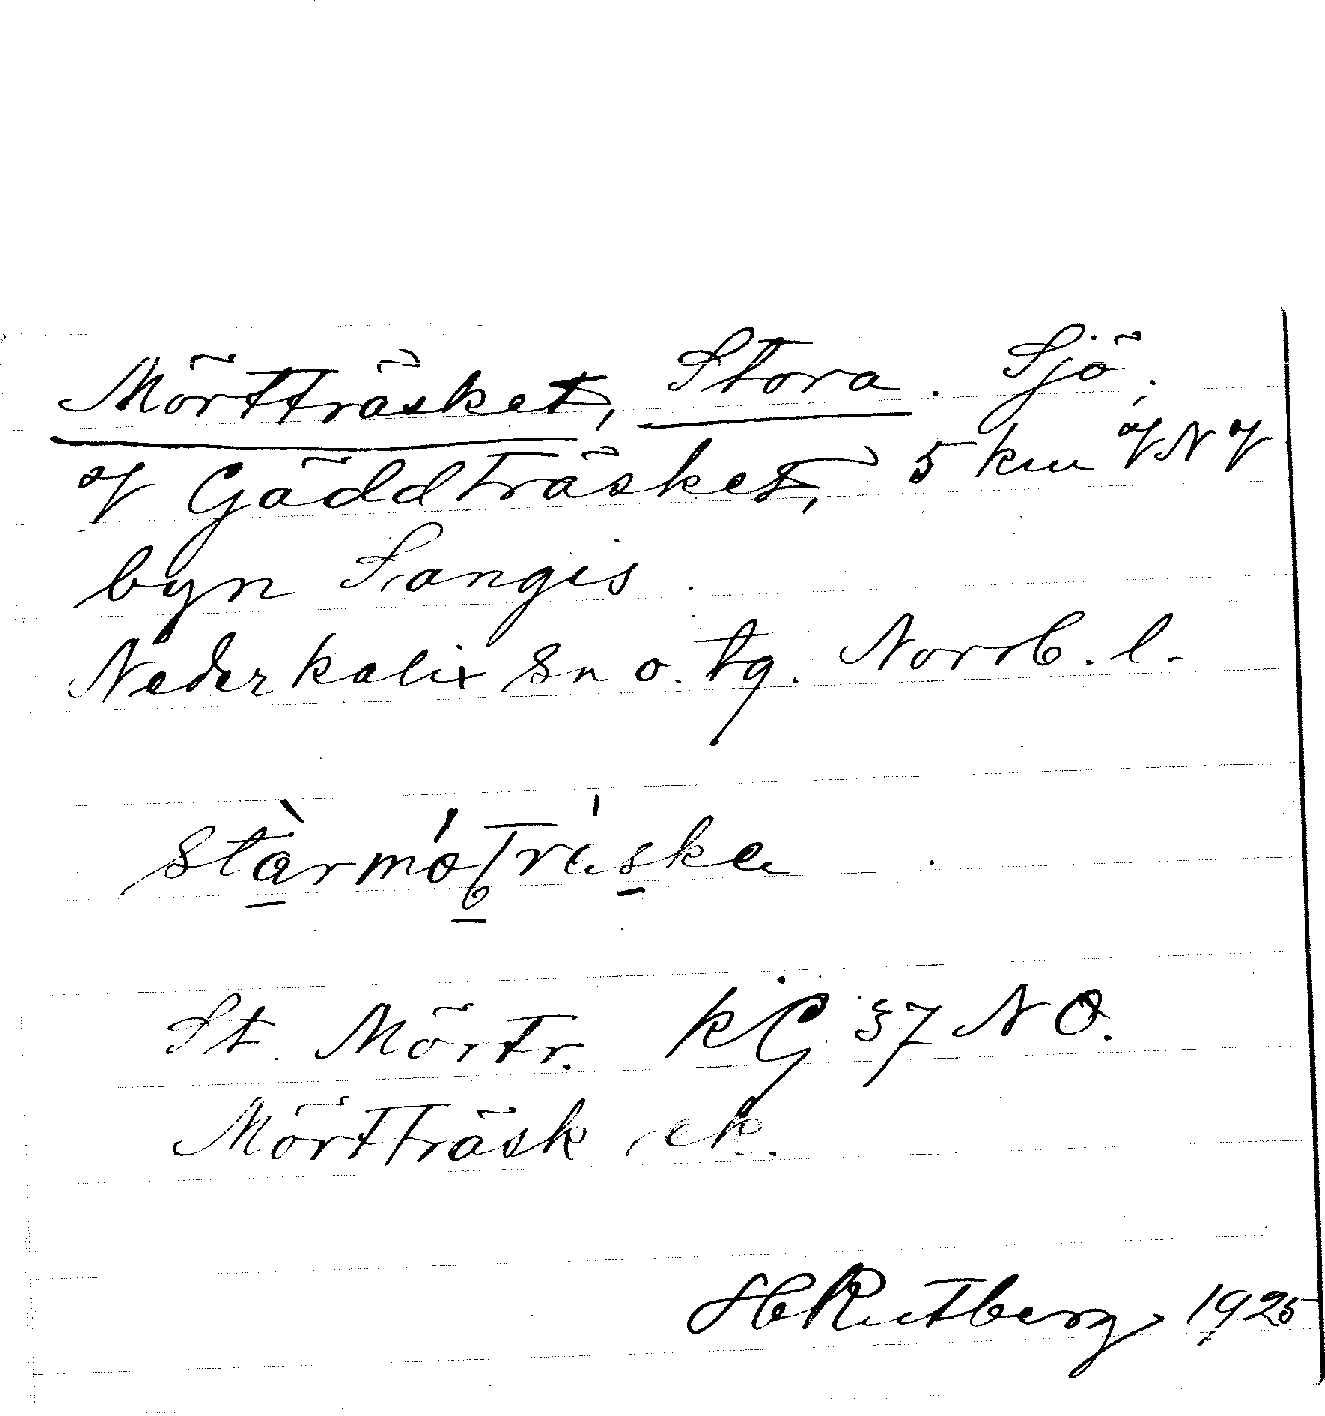 Mörtträsket, Stora. Sjö.
af Gäddträsket, 5 km af N af
byn Sangis.
Nederkalix sn o. tg. Norrb. l.
St. Mörtr. kG 37 NO.
Mörtträsk ek.
H Rutberg 1925